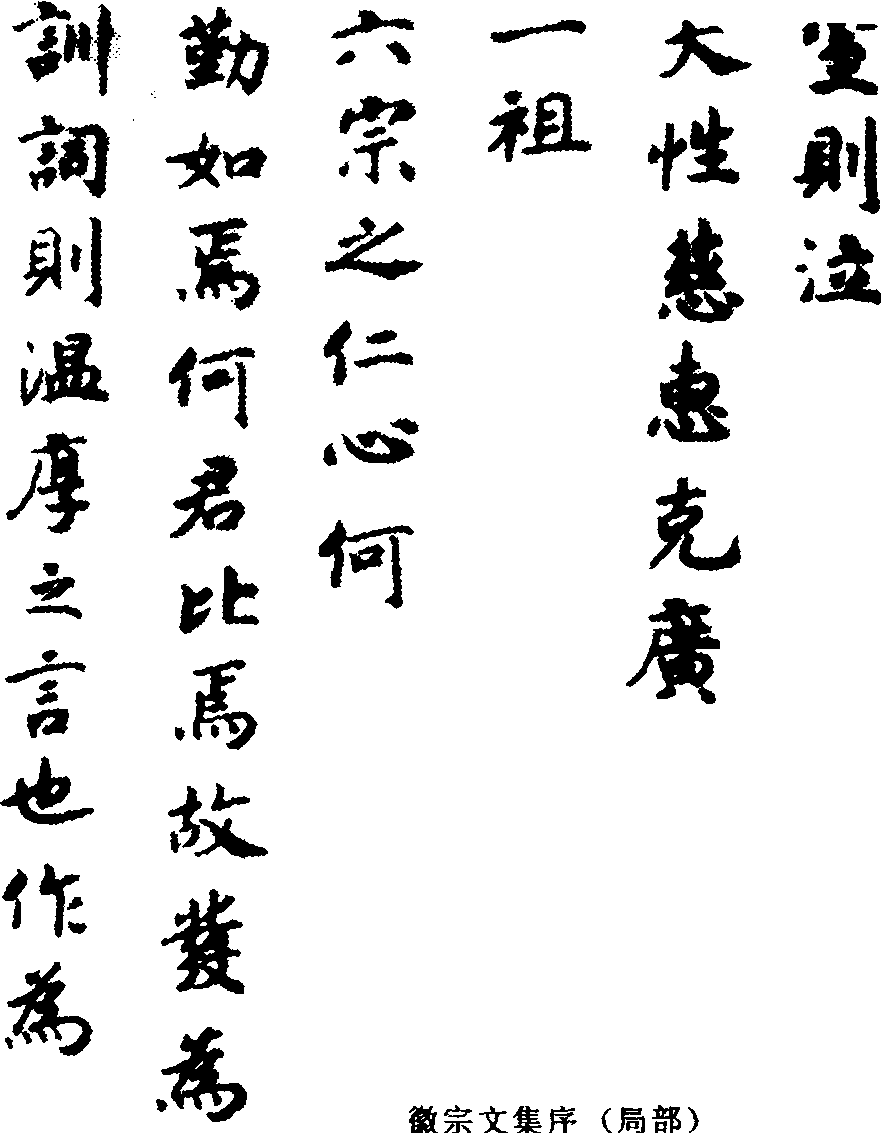 則泣
大性慈惠克廣
一祖
六宗之仁心何
勤如焉何君比焉故發為
訓詞則温厚之言也作為
徽宗文集序（局部）